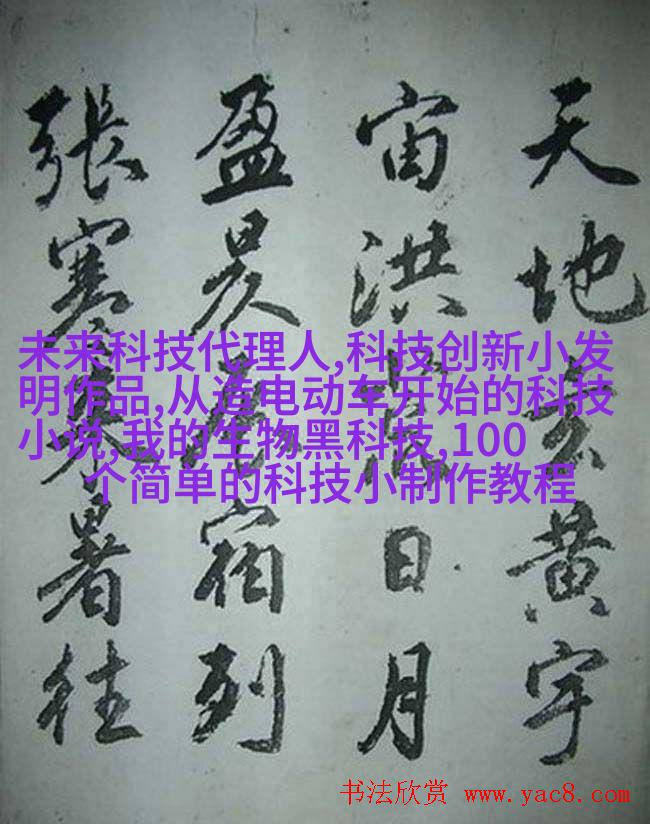 天地玄黄宇
宙洪荒日月
盈昃辰宿列
張寒來暑往
未来科技代理人,科技创新小发
明作品,从造电动车开始的科技
小说,我的生物黑科技,100
个简单的科技小制作教程
书法欣赏 www.yac8.com